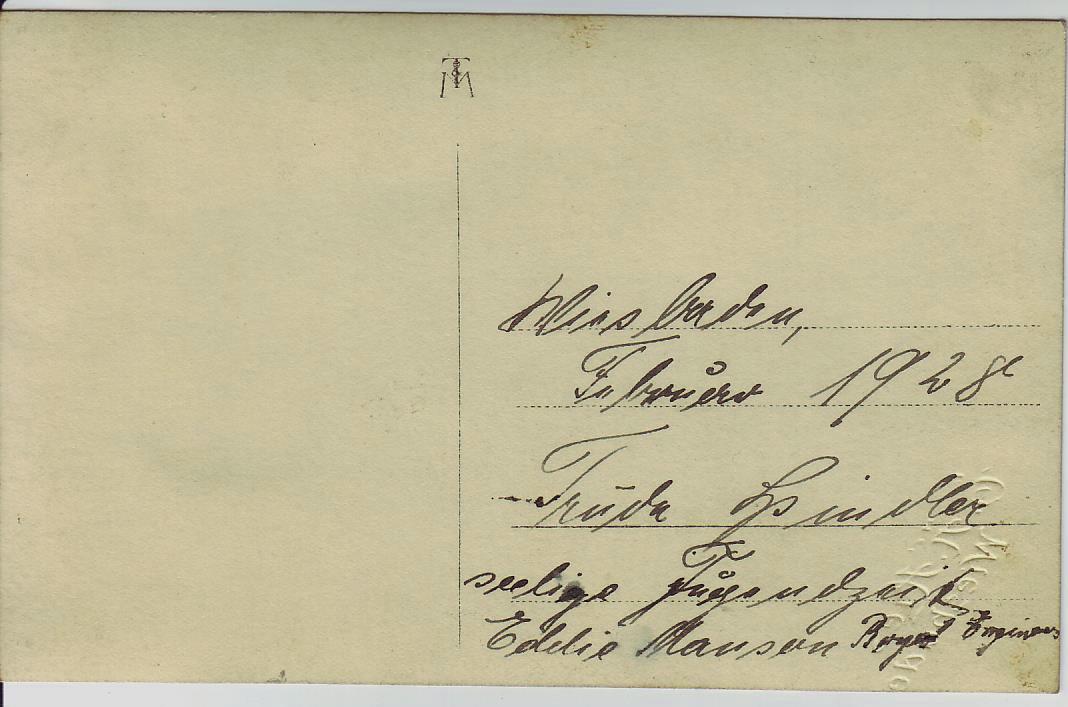 TM
Wiesbaden,
Februar 1928
Trude
seelige Jugendzeit
Eddie Manson Royal Engineers